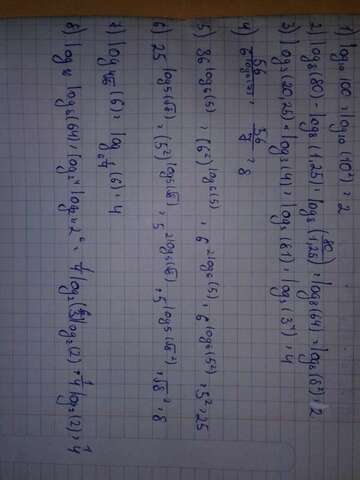 1) log₁₀ 100 = log₁₀ (10²) = 2
2) log₈(80) - log₈(1,25) = log₈(80/1,25) = log₈(64) = log₈(8²) = 2
3) log₃(20,25) + log₃(4) = log₃(81) = log₃(3⁴) = 4
4) 56/6^log₆(7) = 56/7 = 8
5) 36^log₆(5) = (6²)^log₆(5) = 6^2log₆(5) = 6^log₆(5²) = 5² = 25
6) 25^log₅(√8) = (5²)^log₅(√8) = 5^2log₅(√8) = 5^log₅(√8²) = √8² = 8
7) log ⁴√6 (6) = log 6^1/4 (6) = 4